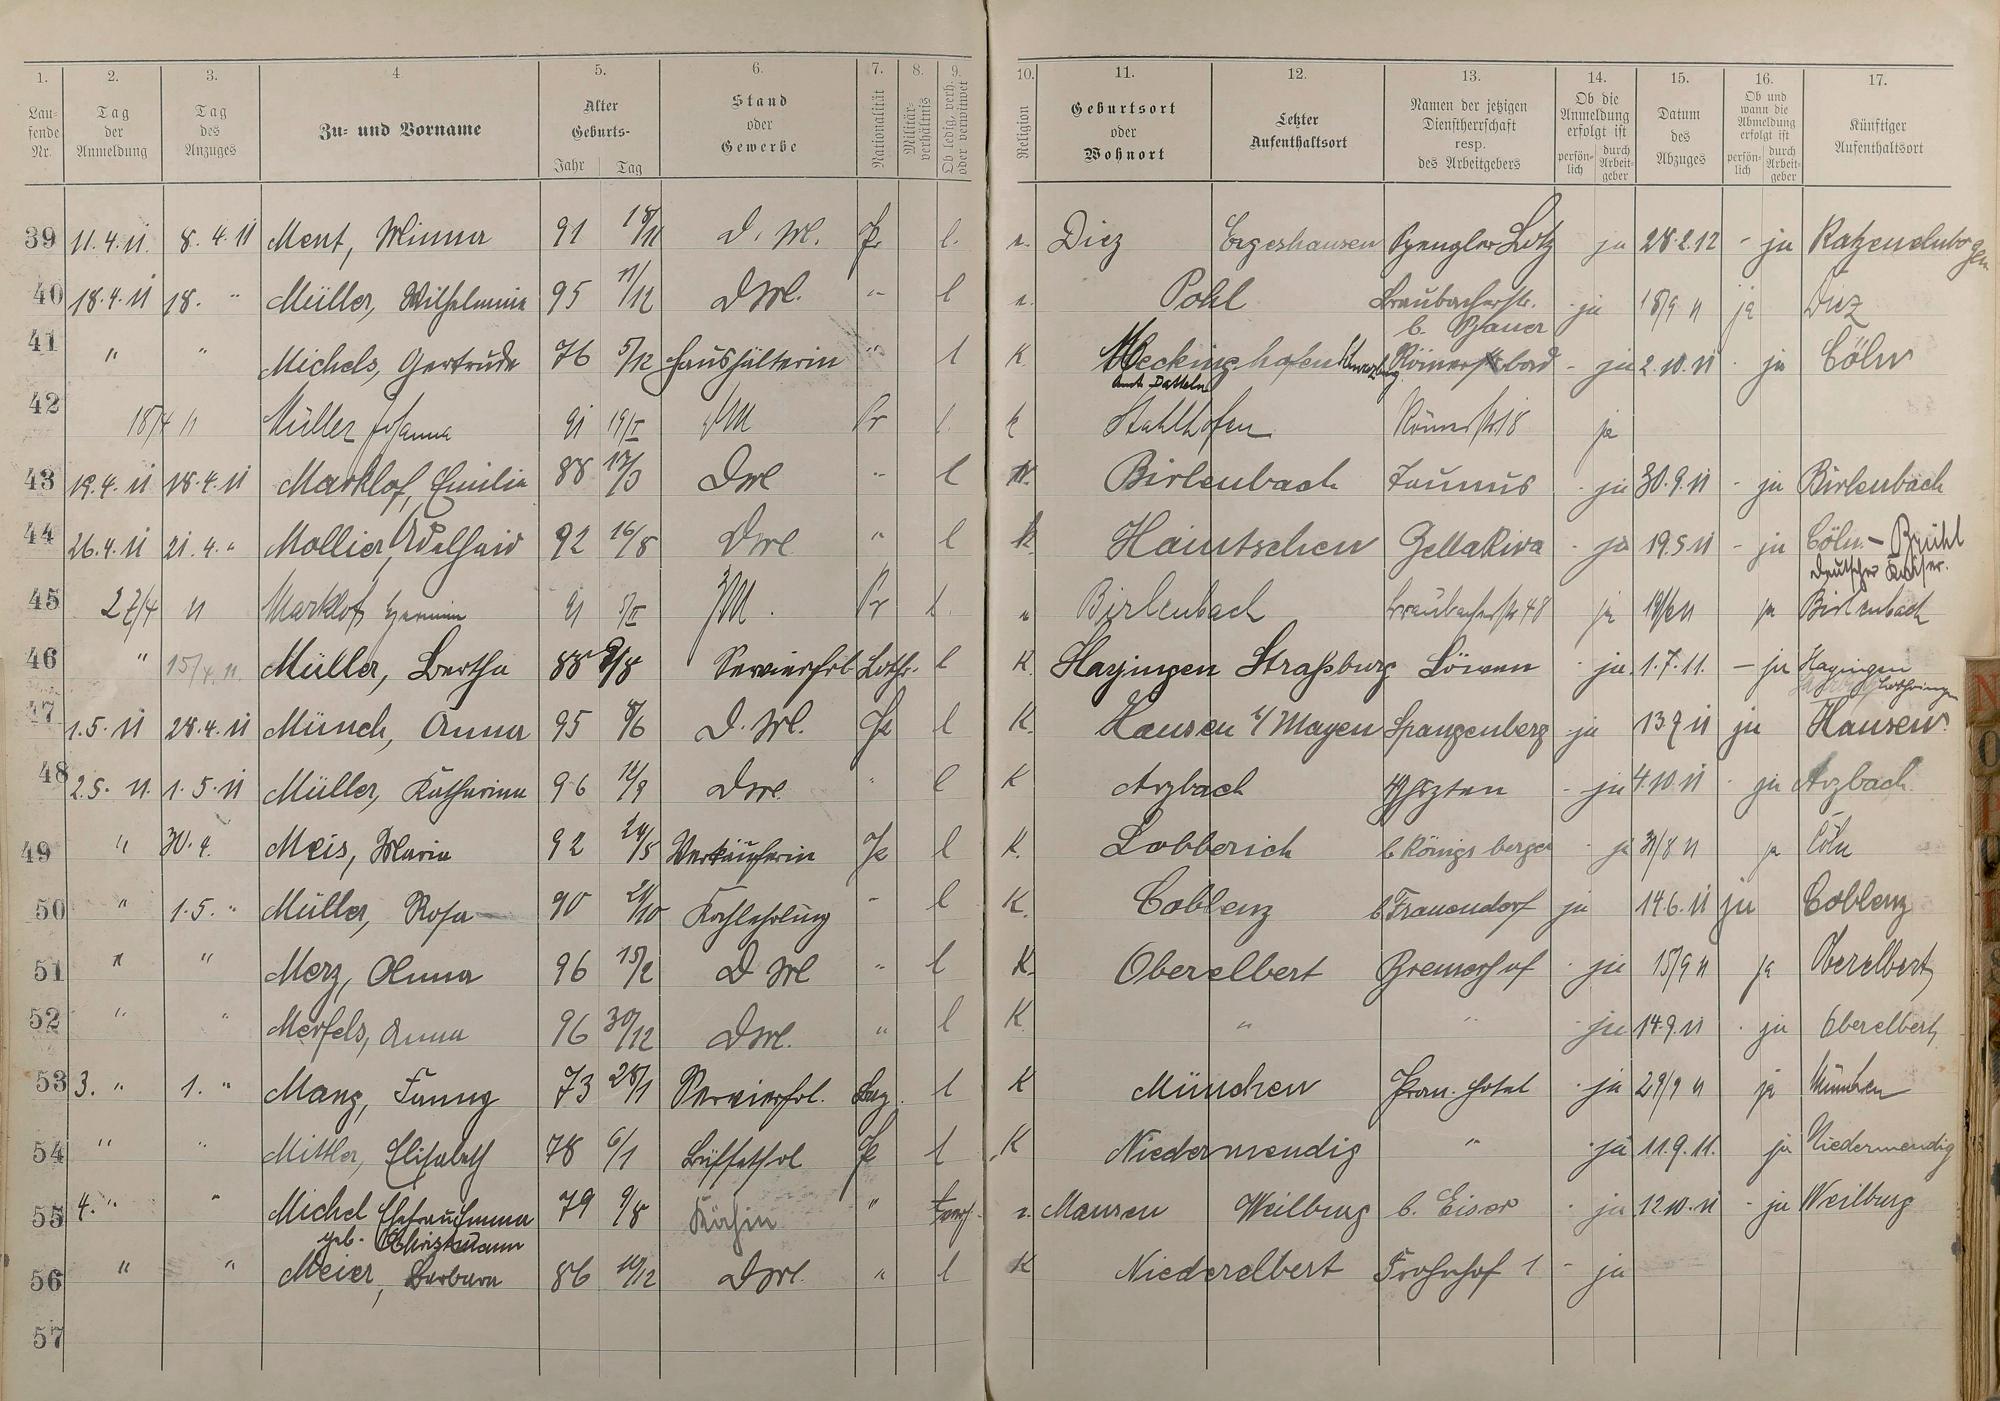 1. 2. 3. 4 5. 6. 7. 8. 9. 10. 11. 12. 13. 14. 15. 16. 17.
Lau-
fende
Nr.
Tag
der
Anmeldung
Tag
des
Anzuges
Zu- und Vorname
Alter
Geburts-
Jahr Tag
Stand
oder
Gewerbe
Nationalität
Militär-
verhältnis
Ob ledig, verh.
oder verwitwet
Religion
Geburtsort
oder
Wohnort
Letzter
Aufenthaltsort
Namen der jetzigen
Dienstherrschaft
resp.
des Arbeitgebers
Ob die
Anmeldung
erfolgt ist
persön-
lich
durch
Arbeit-
geber
Datum
des
Abzuges
Ob und
wann die
Abmeldung
erfolgt ist
persön-
lich
durch
Arbeit-
geber
Künftiger
Aufenthaltsort
39 11.4.11. 8.4.11 Ment, Minna 91 18/11 D. M. Pr l. Diez Ergeshausen Spengler Lotz ja 28.2.12 - ja Katzenelnbogen
40 18.4.11 18. " Müller, Wilhelmine 95 11/12 DM. " l Pohl Braubacherstr. - ja 18/9 11 ja Diez
b. Bauer
41 " " Michels, Gertrude 76 5/12 Haushälterin " l K Meckinghofen Römerbad - ja 2.10.11 - ja Cöln
Amt Datteln
42 18/4 11 Müller Johanna 91 19/I DM Pr l. k Stahlhofen Römerstr. 18 ja
43 19.4.11 18.4.11 Marklof, Emilie 88 17/3 DM " l Birlenbach Taunus - ja 30.9.11 - ja Birlenbach
44 26.4.11 21.4. " Mollier, Adelheid 92 16/8 DM " l k Haintschen Bella Riva - ja 19.5.11 - ja Cöln - Brühl
deutscher Kaiser.
45 27/4 11 Marklof Hermine 91 DM. Pr l. Birlenbach Braubacherstr 48 ja ja Birlenbach
46 " 15/4.11. Müller, Bertha 88 9/8 Servierfrl. Lothr. l K. Hayingen Straßburg Löwen - ja 1.7.11. - ja Hayingen
Lothringen
47 1.5.11 28.4.11 Münch, Anna 95 8/6 D. M. Pr l K. Hausen b/ Mayen Spangenberg - ja 13 7 11 ja Hausen
48 2.5. 11. 1.5.11 Müller, Katharina 96 12/9 DM. " l K Arzbach - ja 4.10.11 - ja Arzbach.
49 " 30.4. Meis, Maria 92 24/5 Verkäuferin Pr l K. Lobberich b Königsberger - ja 31/8 11 ja Cöln
50 " 1.5. " Müller, Rosa 90 21/10 Kochlehrling " l K. Coblenz b. Frauendorf ja 14.6.11 ja Coblenz
51 " " Merz, Anna 96 15/2 D M " l K. Oberelbert Bremerhof - ja 15/9 11 ja Oberelbert
52 " " Merfels, Anna 96 30/12 DM. " l K " " - ja 14.9.11 - ja Oberelbert
53 3. " 1. " Mang, Fanny 73 28/1 Servierfrl. Bay. l K München Pran. Hotel - ja 29/9 11 ja München
54 " " Mittler, Elisabeth 78 6/1 Büffetfrl Pr l K Niedermendig " - ja 11.9.11. ja Niedermendig
55 4. " " Michel Ehefrau Emma 79 9/8 Köchin " Mansen Weilburg b. Eiser - ja 12.10.11 - ja Weilburg
geb. Christmann
56 " " Meier, Barbara 86 10/12 DM. " l K Niederelbert Frohnhof 1 - ja
57